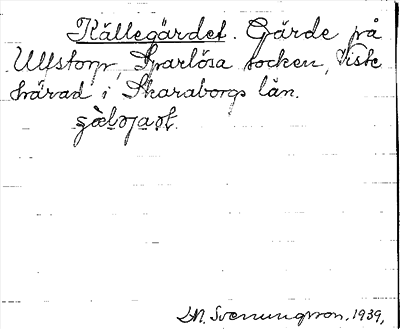 Källegärdet. Gärde på
Ulfstorp, Sparlösa socken, Viste
härad i Skaraborgs län.
S. N. Svenungsson. 1939.